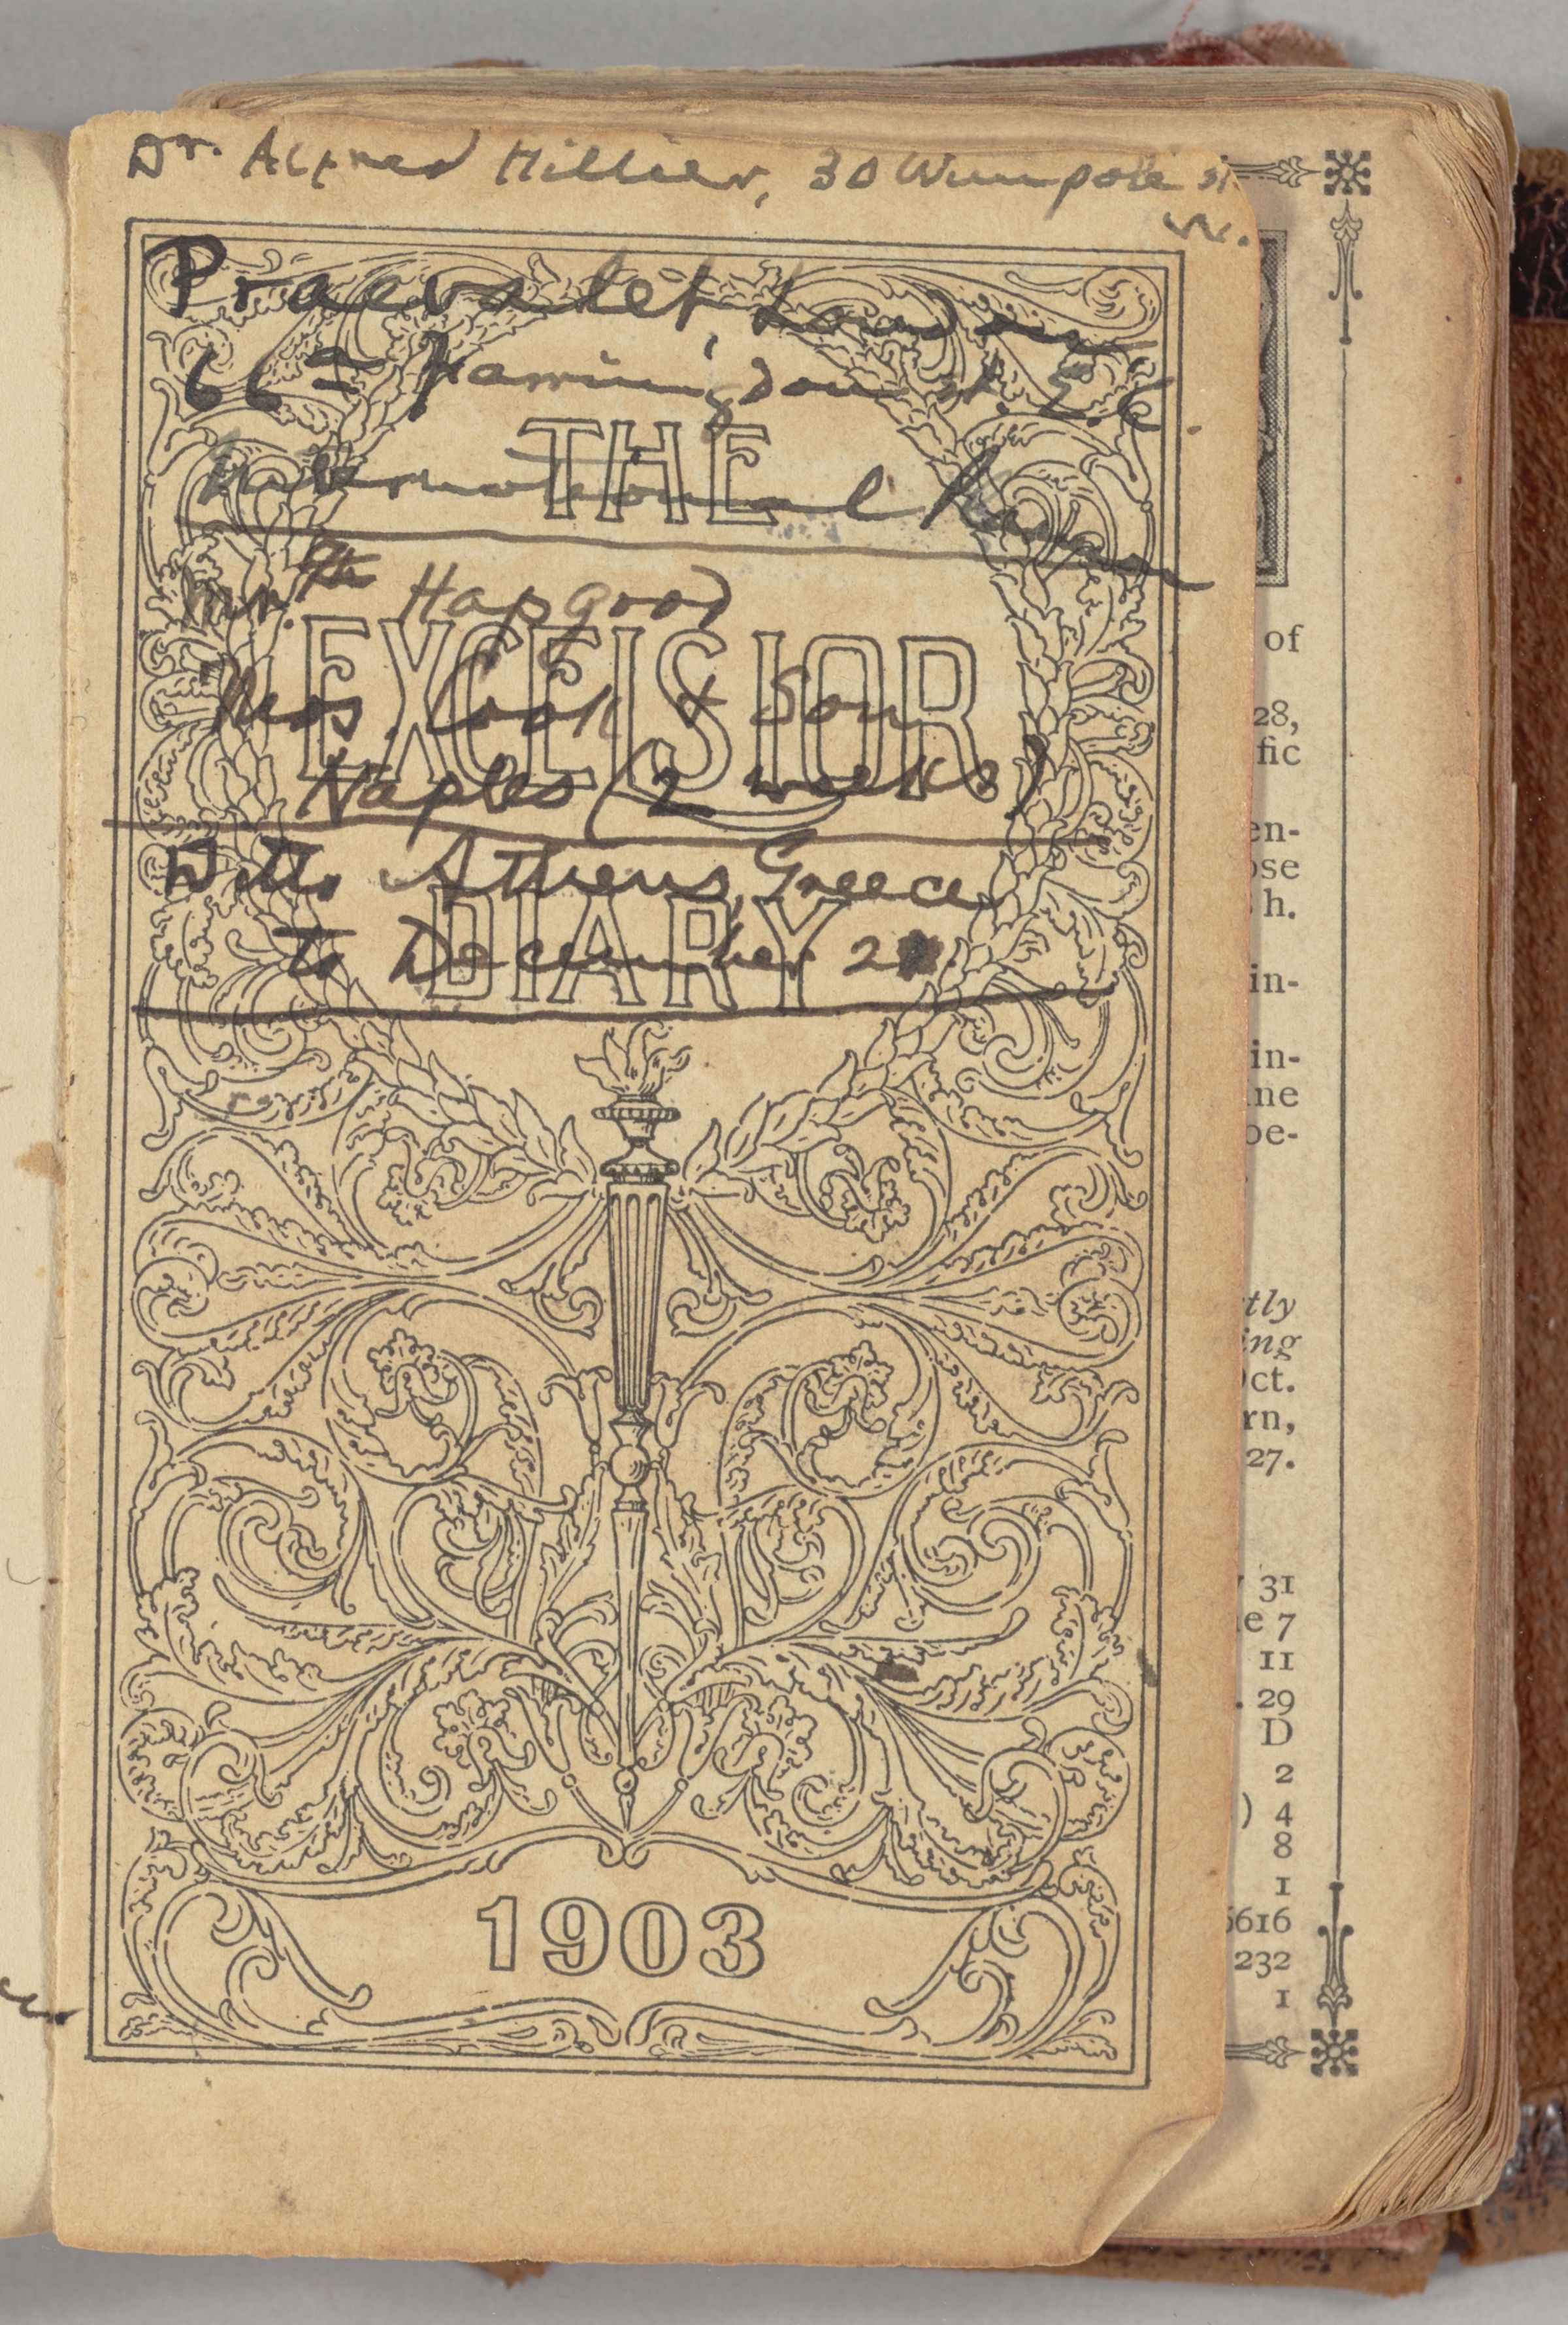 Dr. Alfred Hillier, 30 Wimpole St.
W.
Praevalet, London
66 = Farringdon St. E.C
THE
International
Mr. Hapgood
EXCELSIOR
Thos. Cook & Son
Naples (2 weeks)
Ditto Athens, Greece
DIARY
To December 2
1903
of
28,
fic
en-
ose
h.
in-
in-
ine
be-
tly
ing
Oct.
rn,
27.
31
e 7
11
. 29
D
2
) 4
8
1
6616
232
1